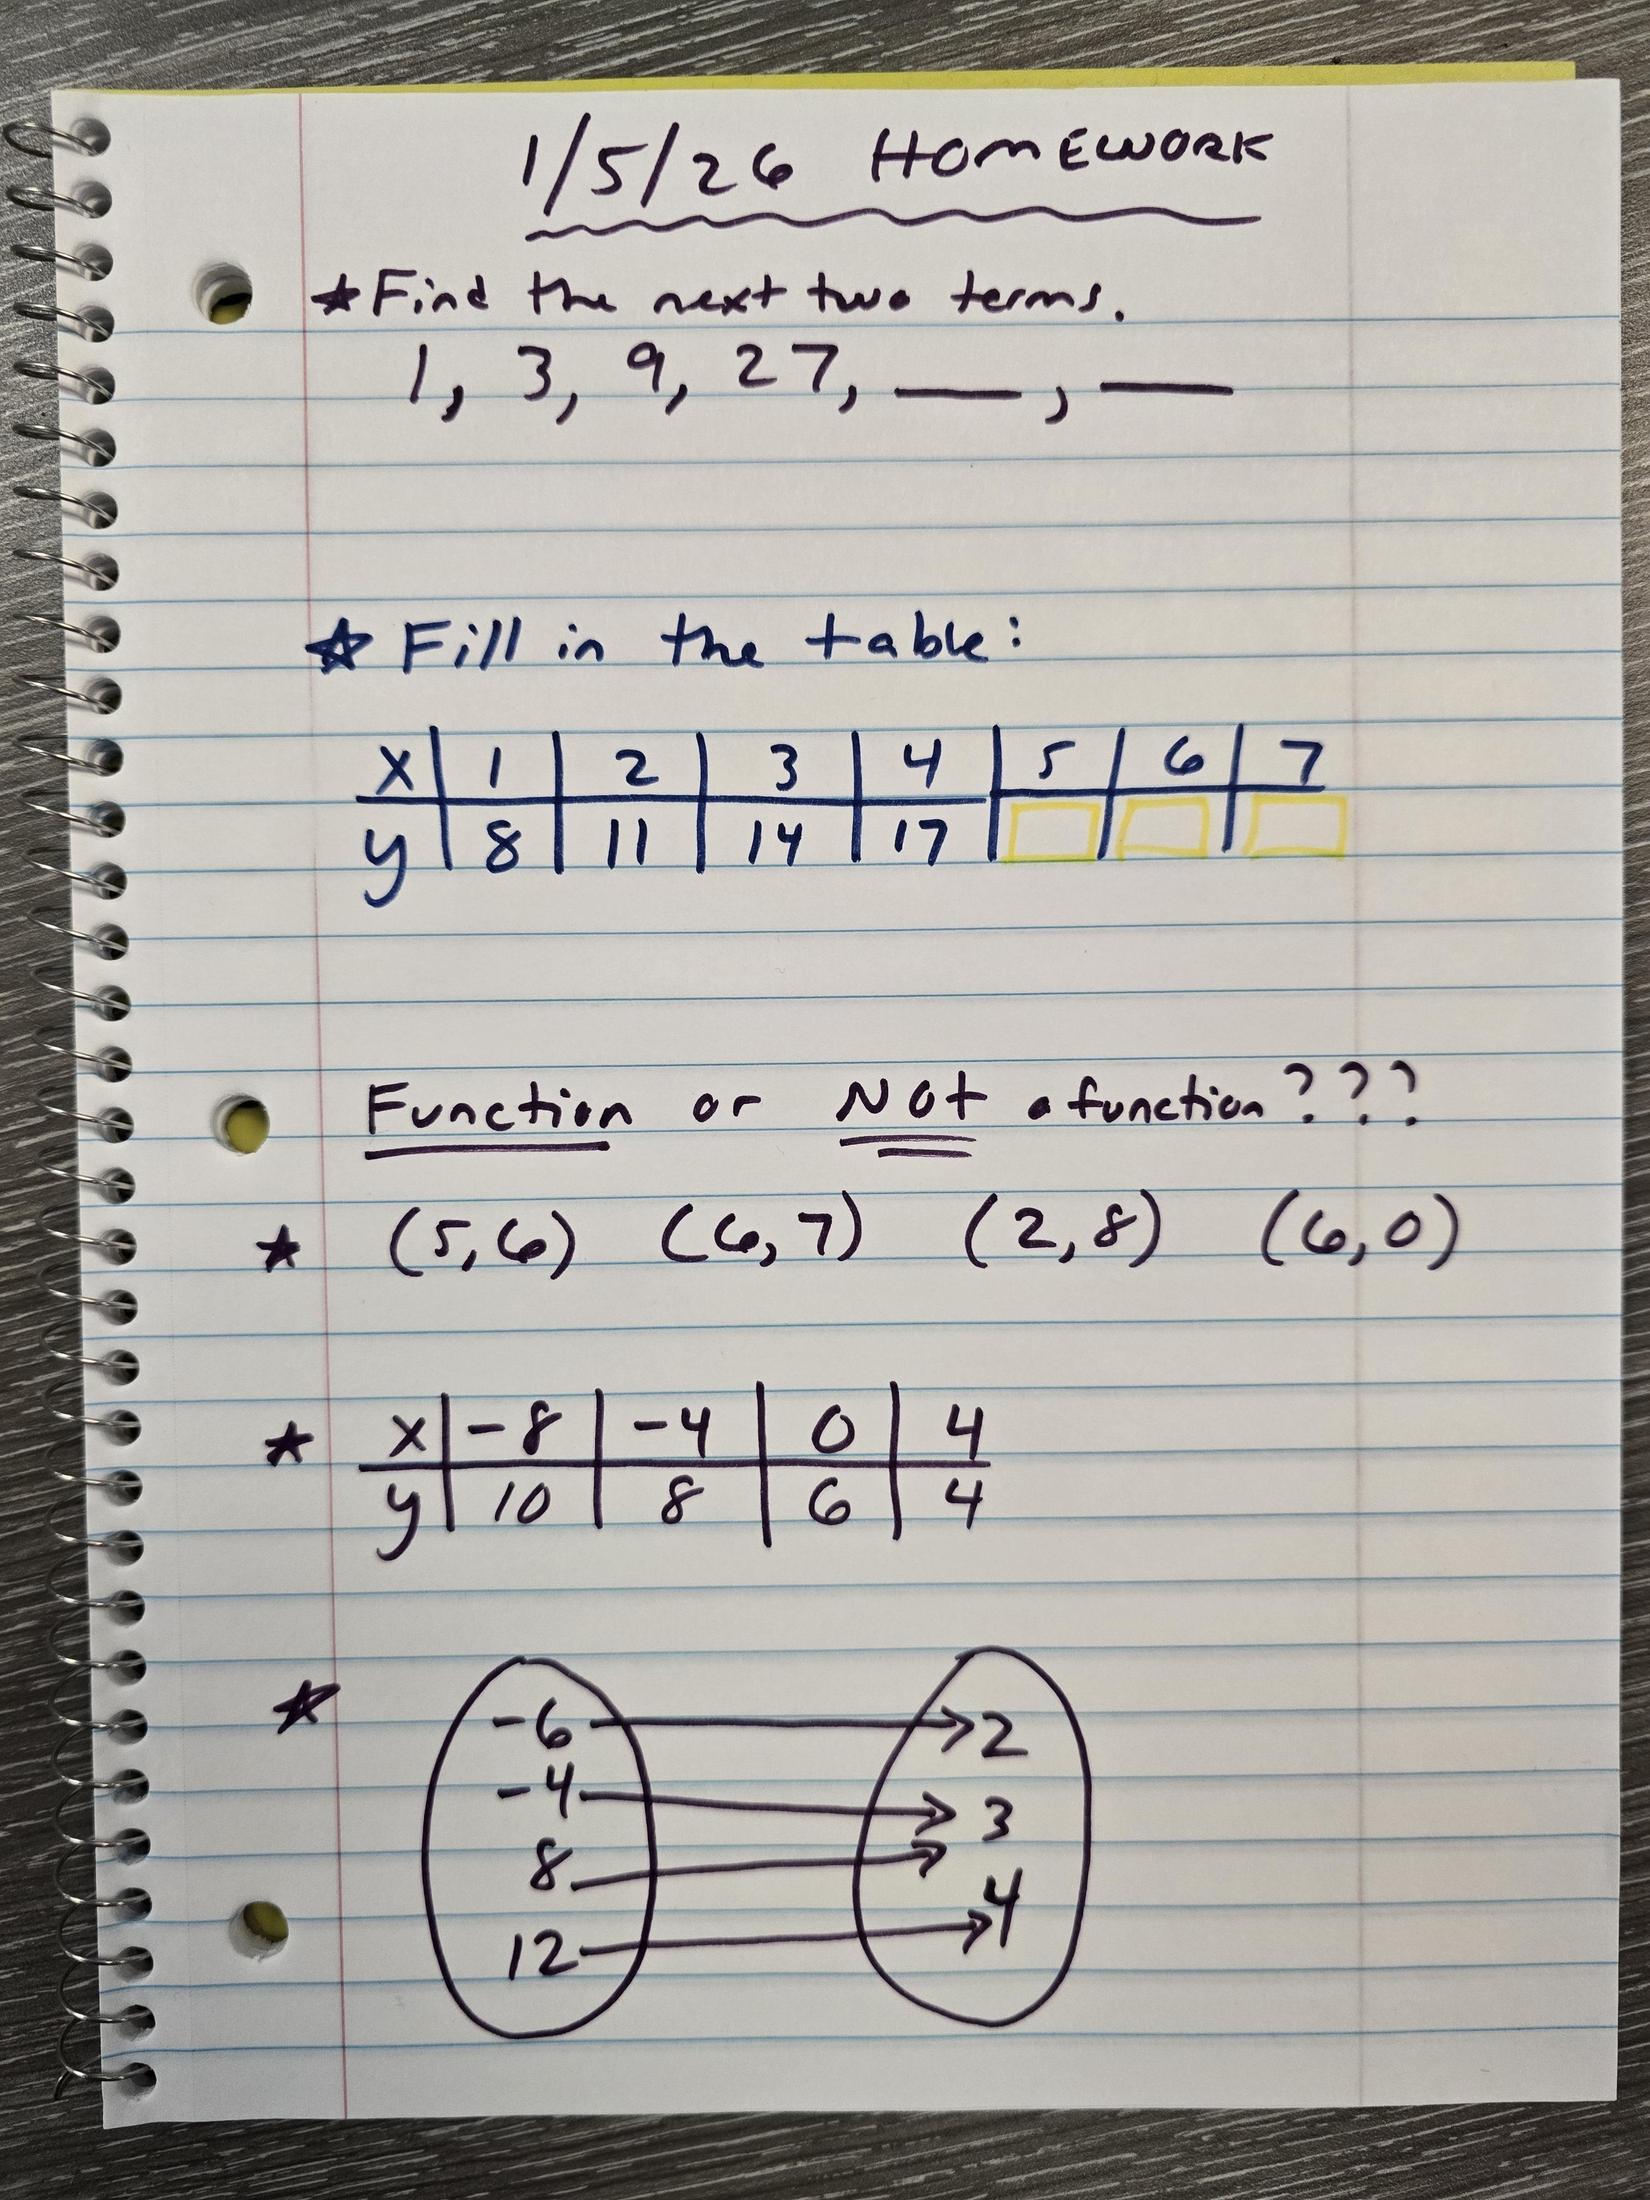 1/5/26 HOMEWORK
★Find the next two terms.
1, 3, 9, 27, ___, ___
☆ Fill in the table:
x | 1 | 2 | 3 | 4 | 5 | 6 | 7
y | 8 | 11 | 14 | 17 | | |
Function or NOt a function???
★ (5,6) (6,7) (2,8) (6,0)
★ x | -8 | -4 | 0 | 4
y | 10 | 8 | 6 | 4
★ -6 → 2
-4 → 3
8 →
12 → 4